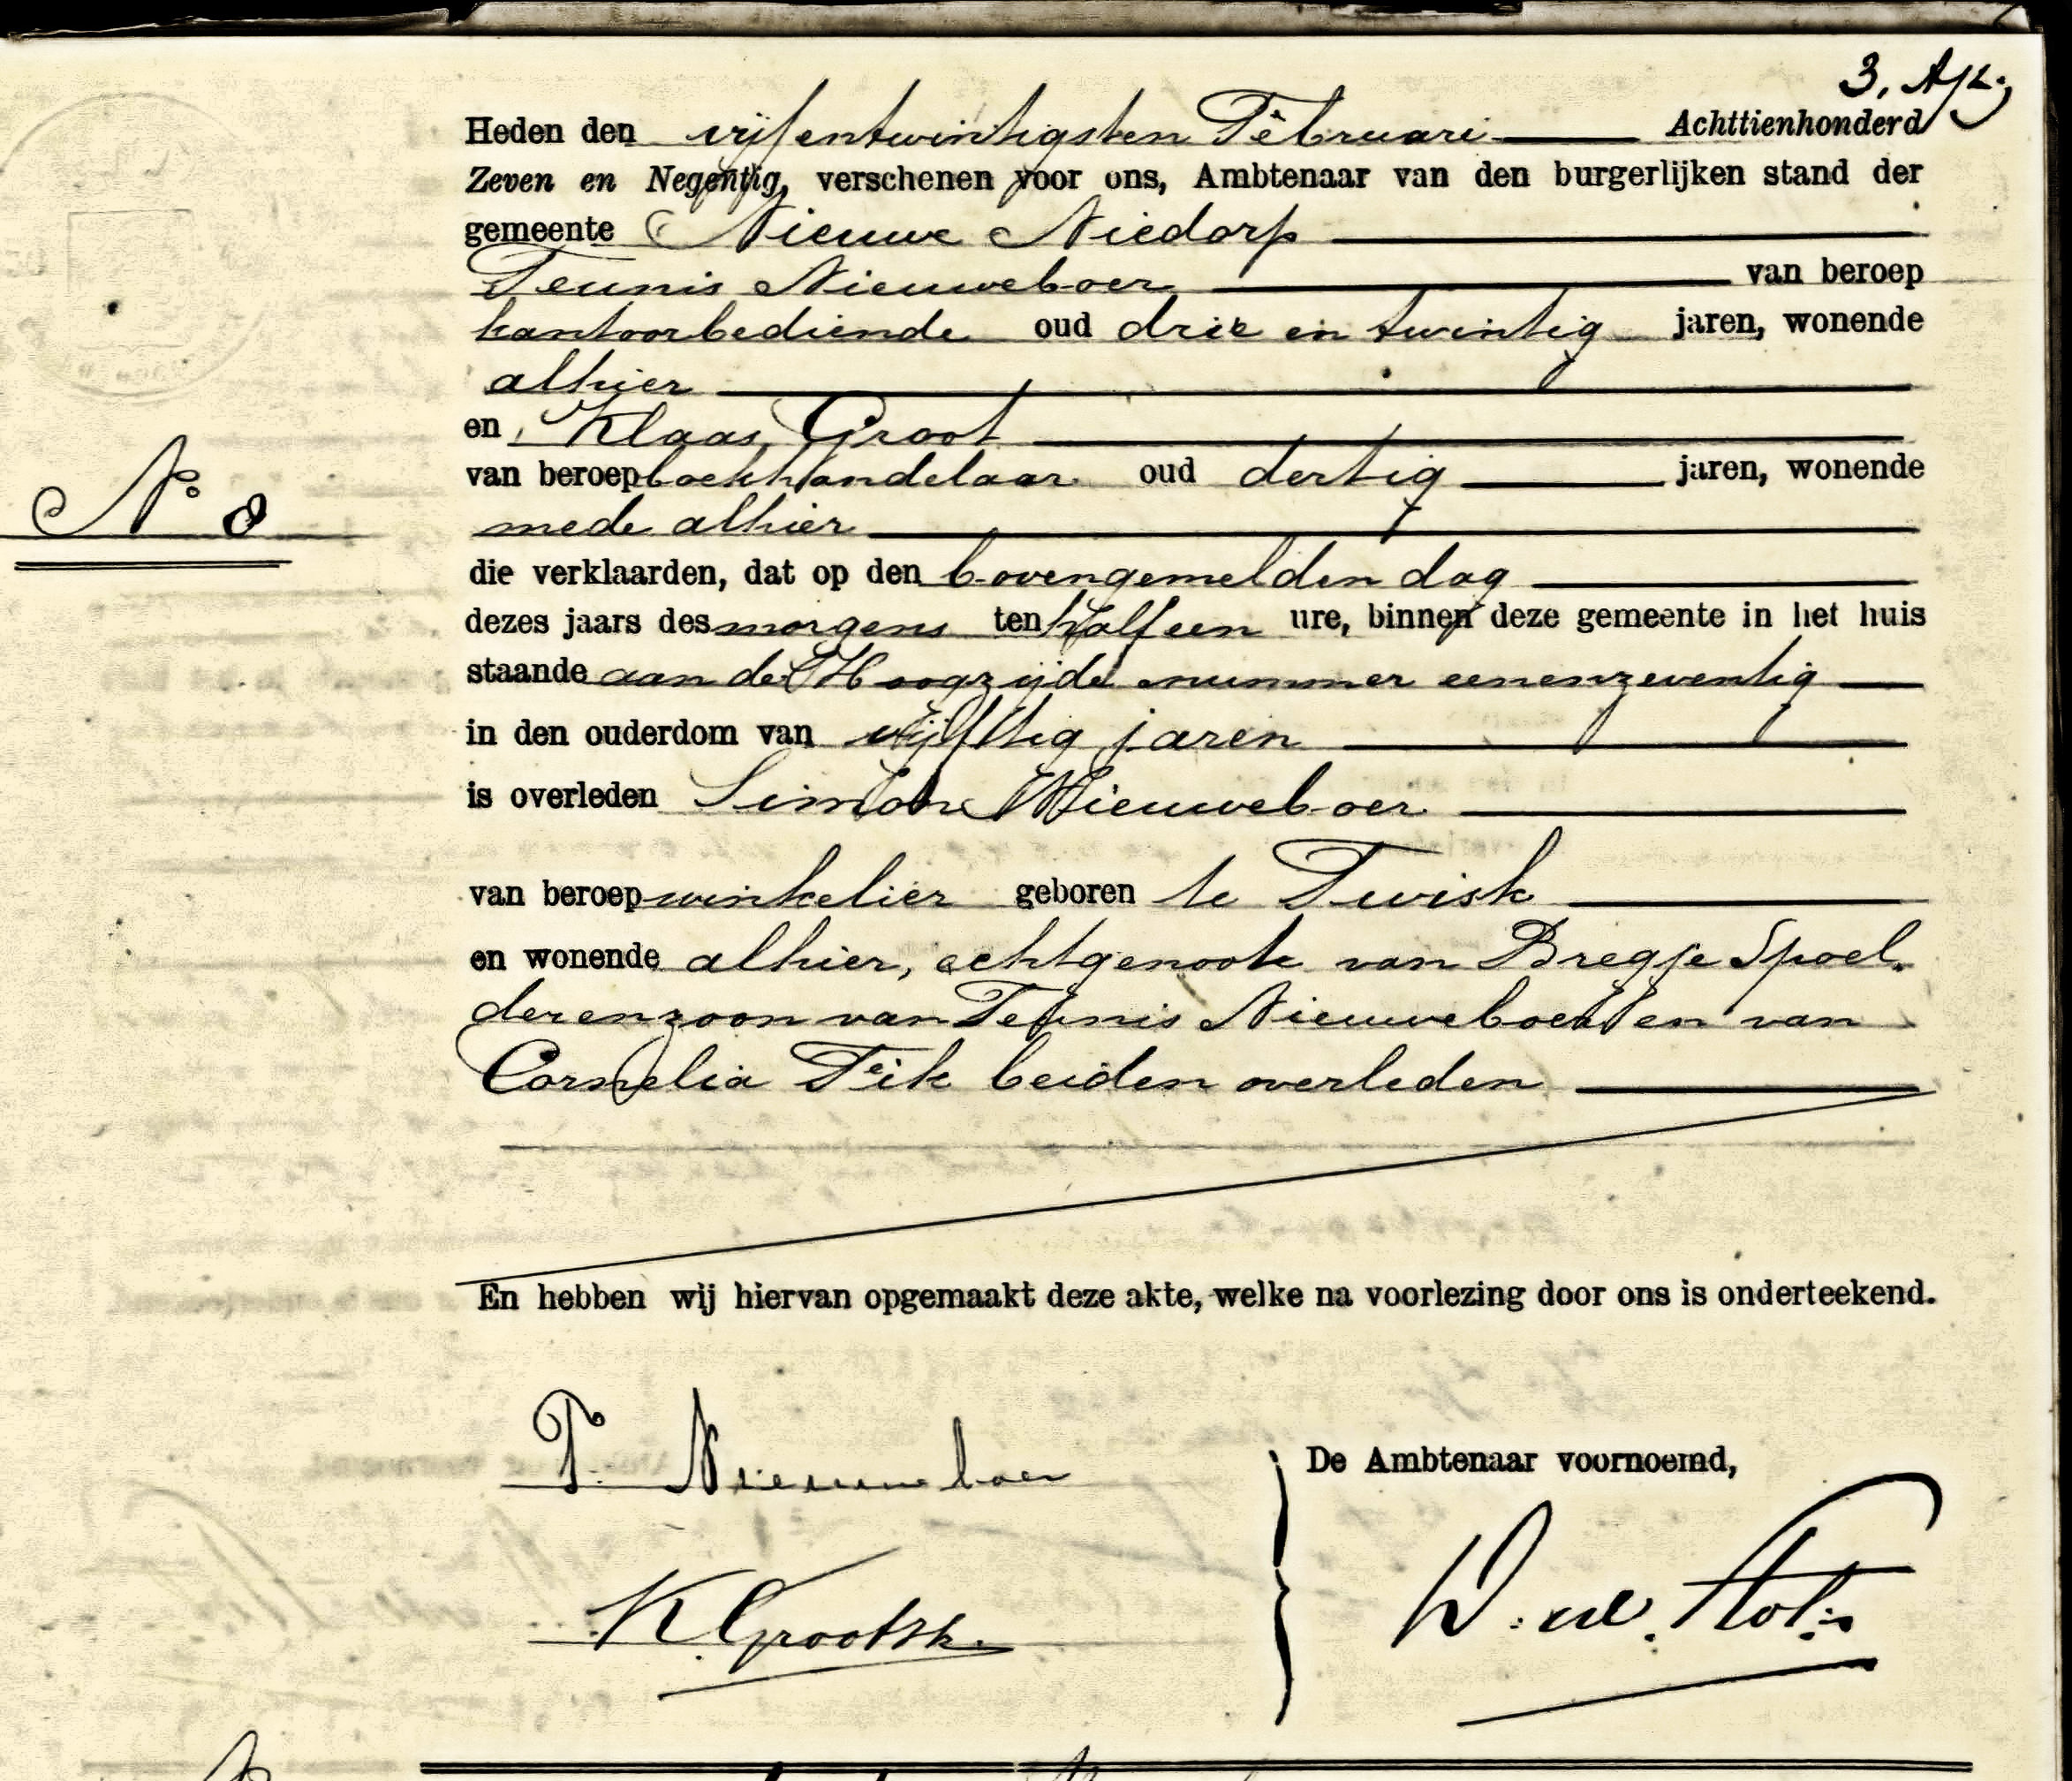 3.
Heden den vijfentwintigsten Februari Achttienhonderd
Zeven en Negentig, verschenen voor ons, Ambtenaar van den burgerlijken stand der
gemeente Nieuwe Niedorp
Teunis Nieuweboer van beroep
kantoorbediende oud drie en twintig jaren, wonende
alhier
en Klaas Groot
van beroep boekhandelaar oud dertig jaren, wonende
mede alhier
No 8
die verklaarden, dat op den bovengemelden dag
dezes jaars des morgens ten half een ure, binnen deze gemeente in het huis
staande aan de Hoogzijde nummer eenenzeventig
in den ouderdom van vijftig jaren
is overleden Simon Nieuweboer
van beroep winkelier geboren te Twisk
en wonende alhier, echtgenoote van Bregje Spoel-
der en zoon van Teunis Nieuweboer en van
Cornelia Feik beiden overleden
En hebben wij hiervan opgemaakt deze akte, welke na voorlezing door ons is onderteekend.
T. Nieuweboer
De Ambtenaar voornoemd,
K Groot